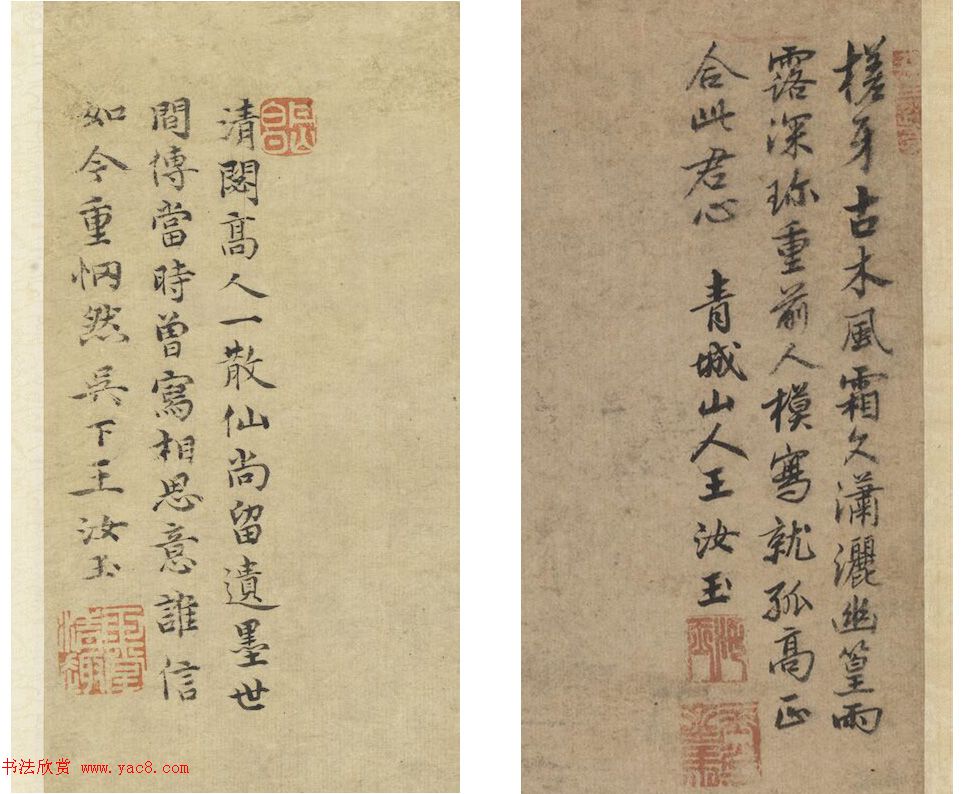 清閟高人一散仙尚留遺墨世
間傳當時曾寫相思意誰信
如今重惘然吳下王汝玉
槎牙古木風霜久瀟灑幽篁雨
露深珎重前人模寫就孤高正
合此君心 青城山人王汝玉
书法欣赏 www.yac8.com